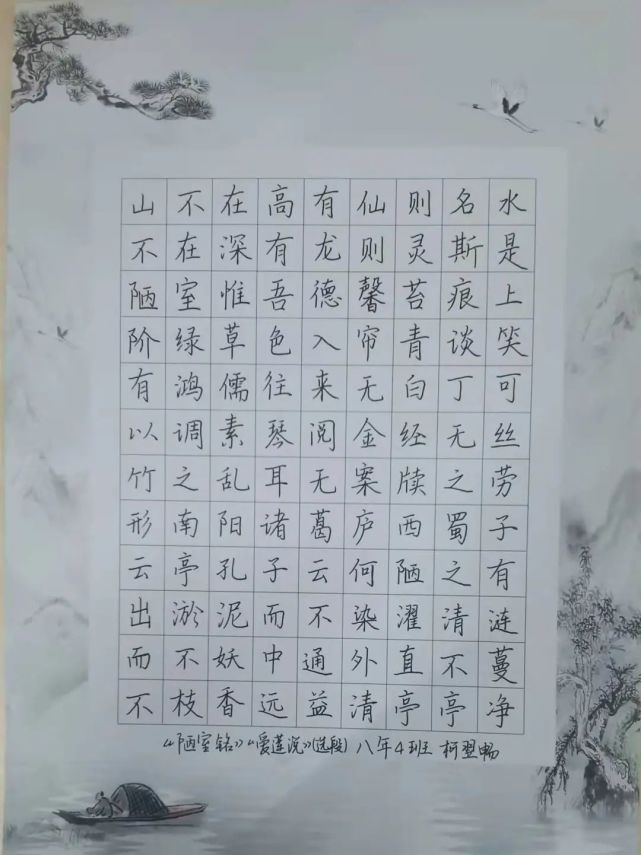 山不在高有仙则名水
不在深有龙则灵斯是
陋室惟吾德馨苔痕上
阶绿草色入帘青谈笑
有鸿儒往来无白丁可
以调素琴阅金经无丝
竹之乱耳无案牍之劳
形南阳诸葛庐西蜀子
云亭孔子云何陋之有
出淤泥而不染濯清涟
而不妖中通外直不蔓
不枝香远益清亭亭净
《陋室铭》《爱莲说》(选段) 八年4班 柯翌畅